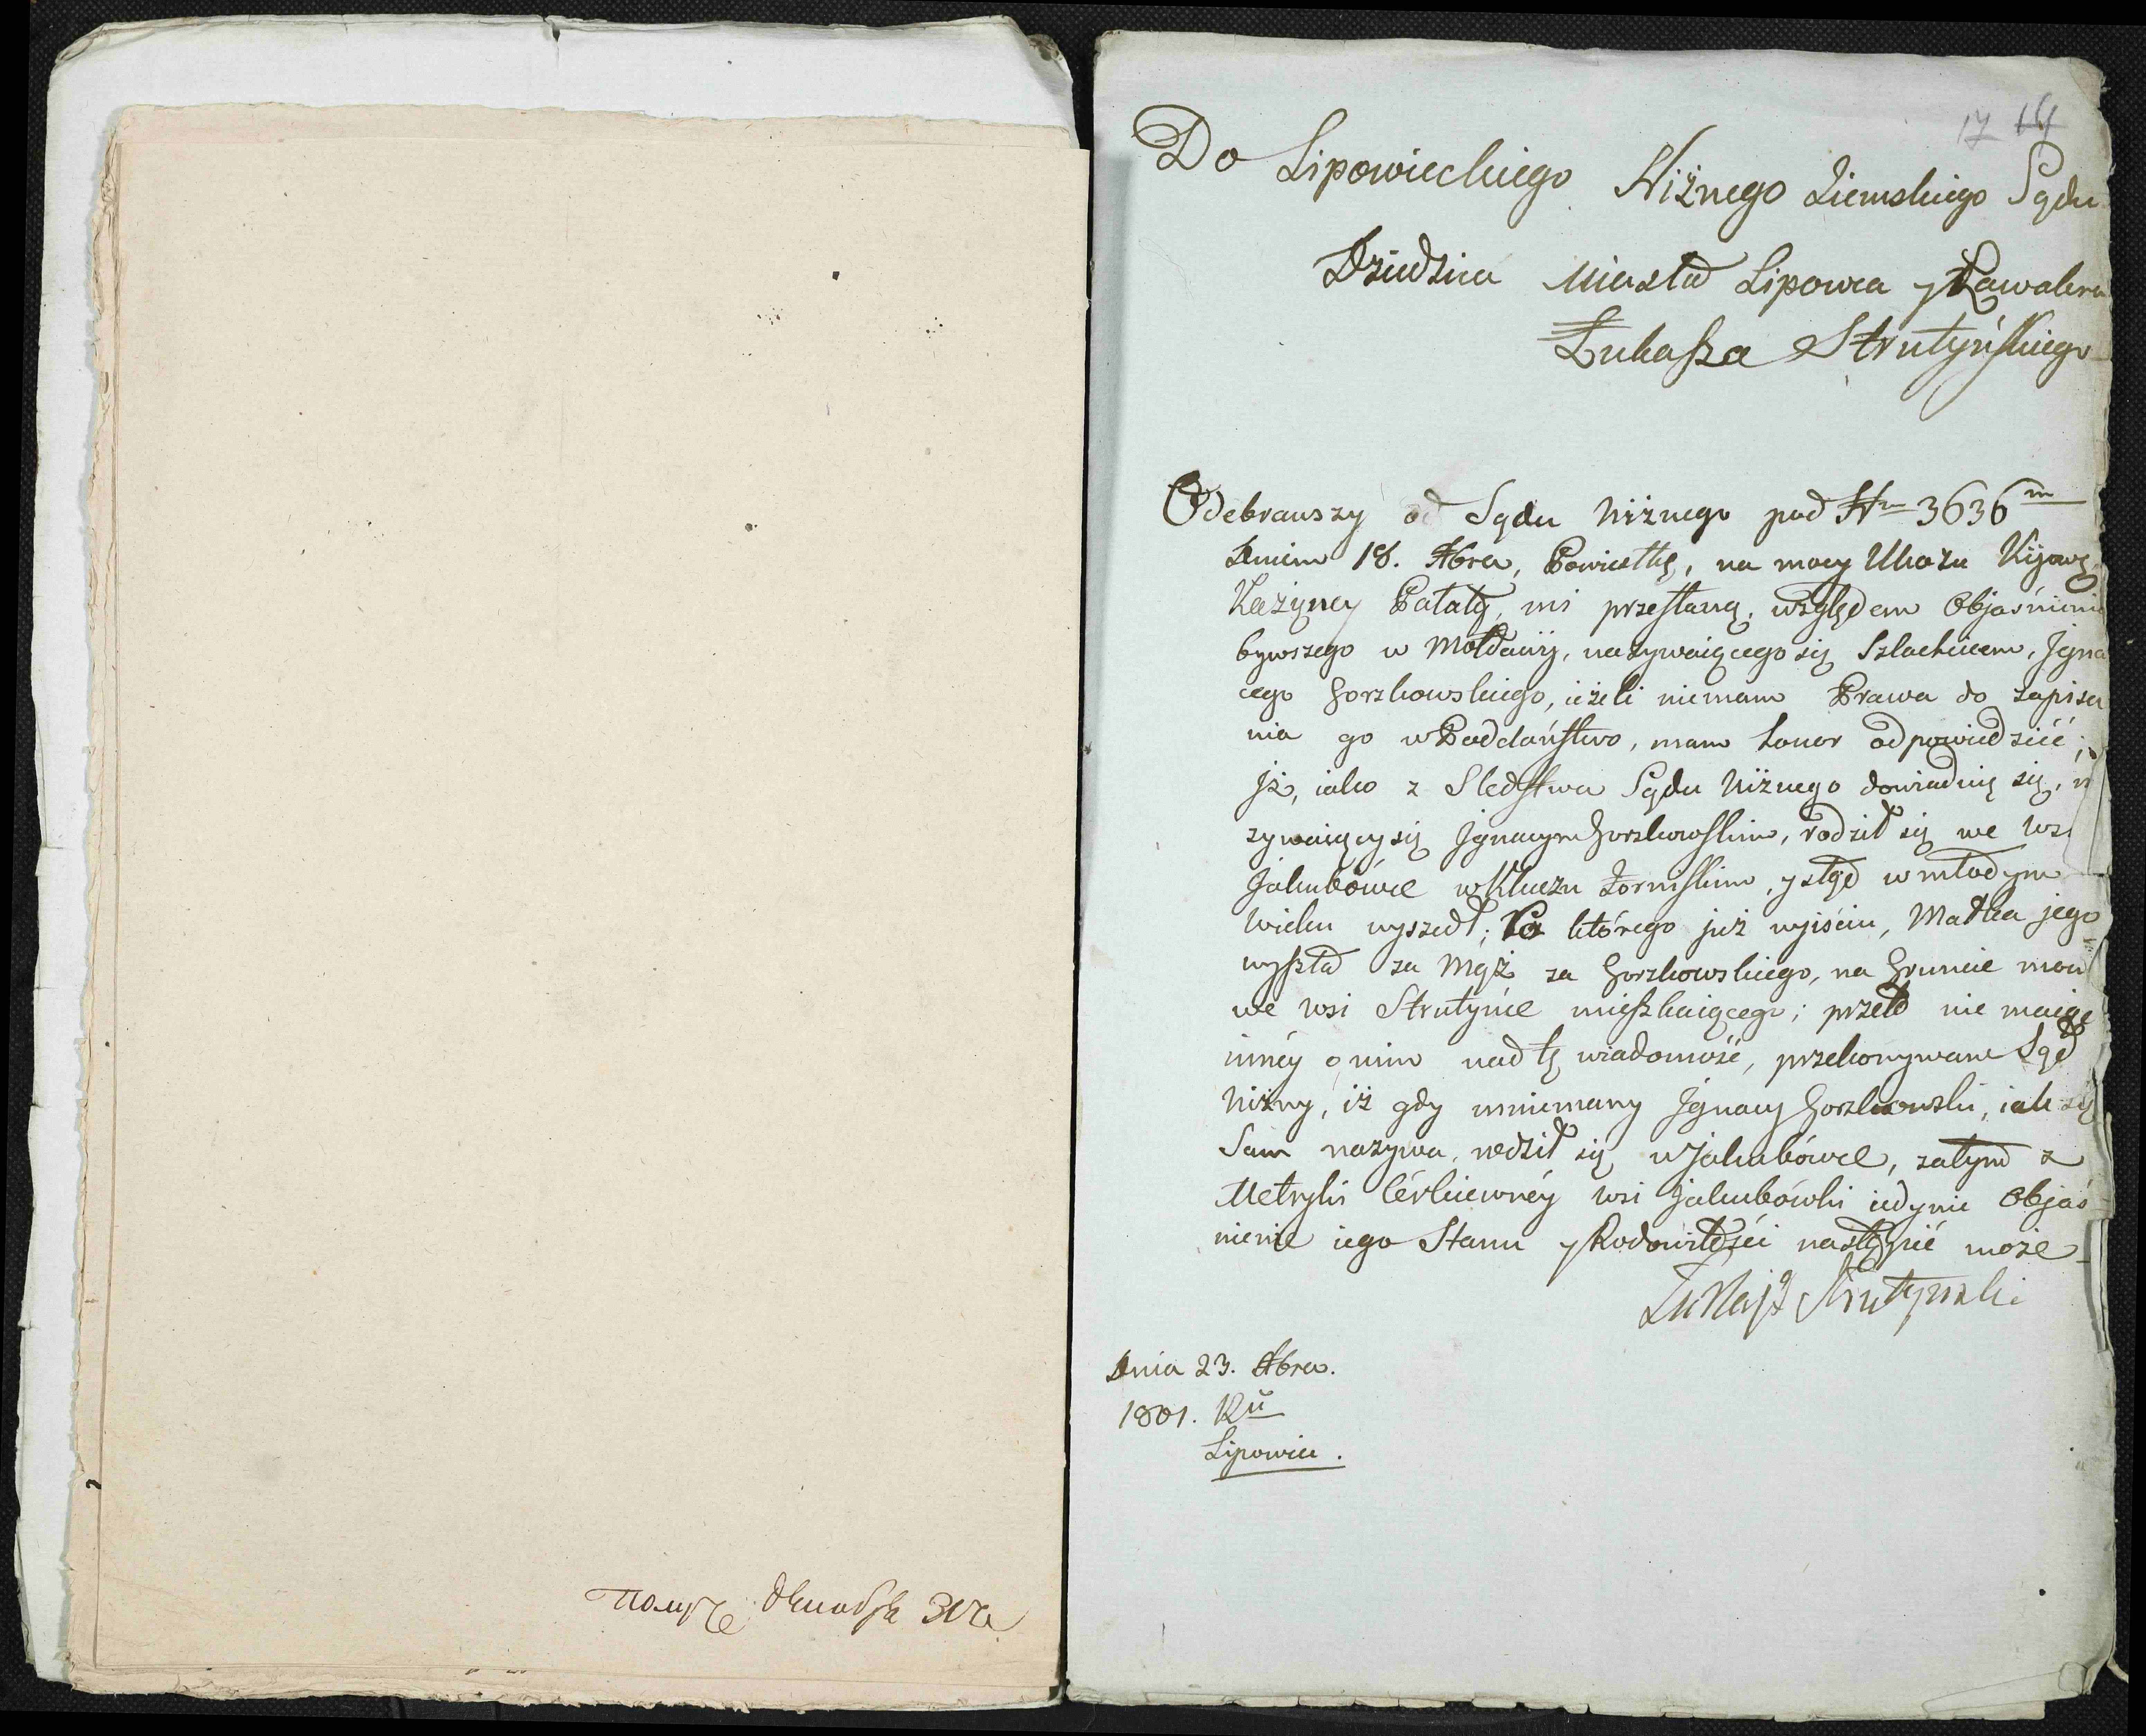 получе Декабря 31го
17 14
Do Lipowieckiego Niżnego Ziemskiego Sądu
Dziedzica Miasta Lipowca y Kawalera
Łukaſza Strutyńſkiego
Odebrawszy od Sądu Niżnego pod Nm 3636m
Dniem 18. Xbra, Powiestkę, na mocy Ukazu Kijows
Kaziąney Pałaty, mi przeſłaną, względem Objaśnienia
bywszego w Mołdawij, nazywaiącego się Szlachcicem, Jgna
cego Gorzkowskiego, ieżeli niemam Prawa do zapisa
nia go w Poddańſtwo, mam honor odpowiedzieć;
Jż, iako z Sledſtwa Sądu Niżnego dowiaduię się, n
zywaiący się Jgnacym Gorzkowſkim, rodził się we Ws
Jakubówce w Kluczu ſkim, y ztąd w młodym
Wieku wyszedł; Po którego już wyiściu, Matka jego
wyſzła za Mąż za Gorzkowskiego, na Gruncie moim
we wsi Strutyńce mieſzkaiącego; przeto nie maiąc
innéy o nim nad tę wiadomość, przekonywam Sąd
Niżny, iż gdy mniemany Jgnacy Gorzkowski, iak się
Sam nazywa, rodził się w Jakubówce, zatym z
Metryki Cérkiewnéy wsi Jakubówki iedynie Objaś-
nienie iego Stanu y Rodowitości nastąpić może
Łukaſz Strutynski
Dnia 23. Xbra.
1801. Ru
Lipowiec.